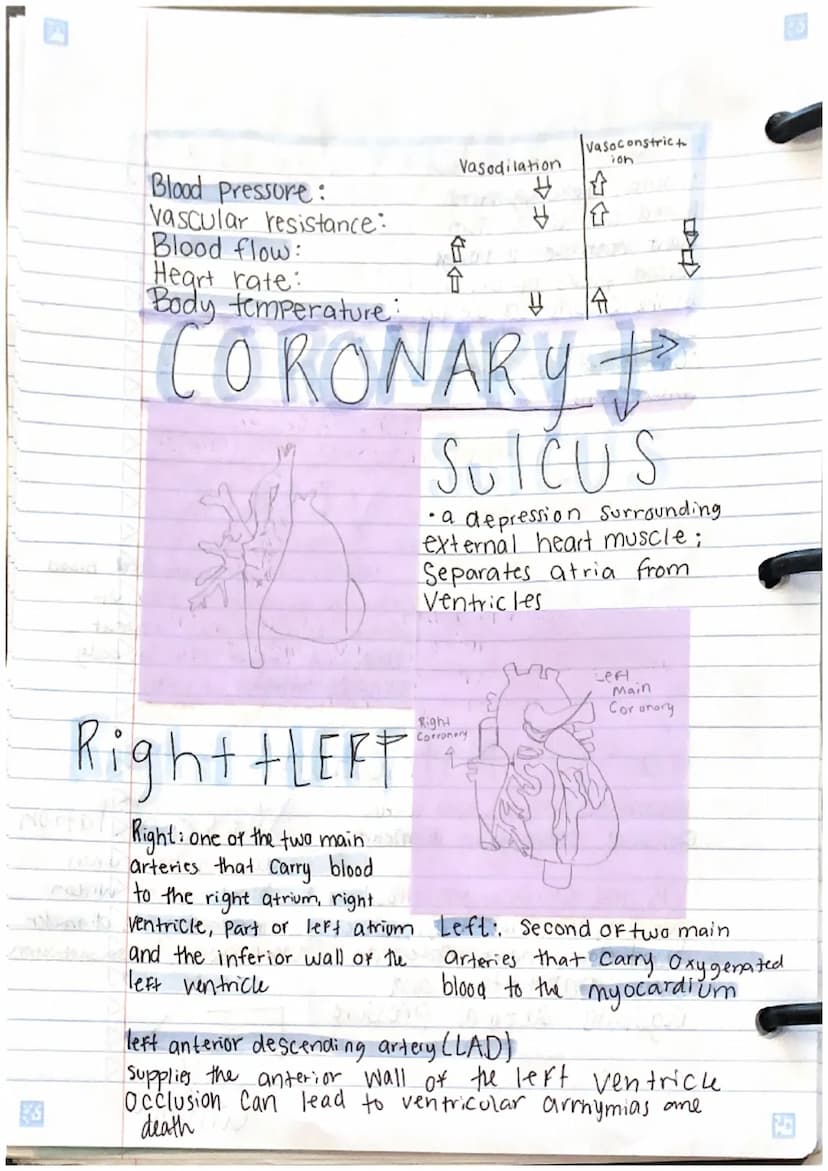 Vasodilation Vasoconstrict
ion
Blood pressure: ⇩ ⇧
Vascular resistance: ⇩ ⇧
Blood flow: ⇧ ⇩
Heart rate: ⇧ ⇩
Body temperature: ⇩ ⇧
CORONARY
SulCUS
• a depression surrounding
external heart muscle;
Separates atria from
ventricles
Left
Main
Coronary
Right
Corronary
Right + LEFT
Right: one of the two main
arteries that carry blood
to the right atrium, right
ventricle, part of left atrium
and the inferior wall of the
left ventricle
Left: Second of two main
arteries that carry oxygenated
blood to the myocardium
left anterior descending artery (LAD)
supplies the anterior wall of the left ventricle
Occlusion can lead to ventricular arrhymias
death